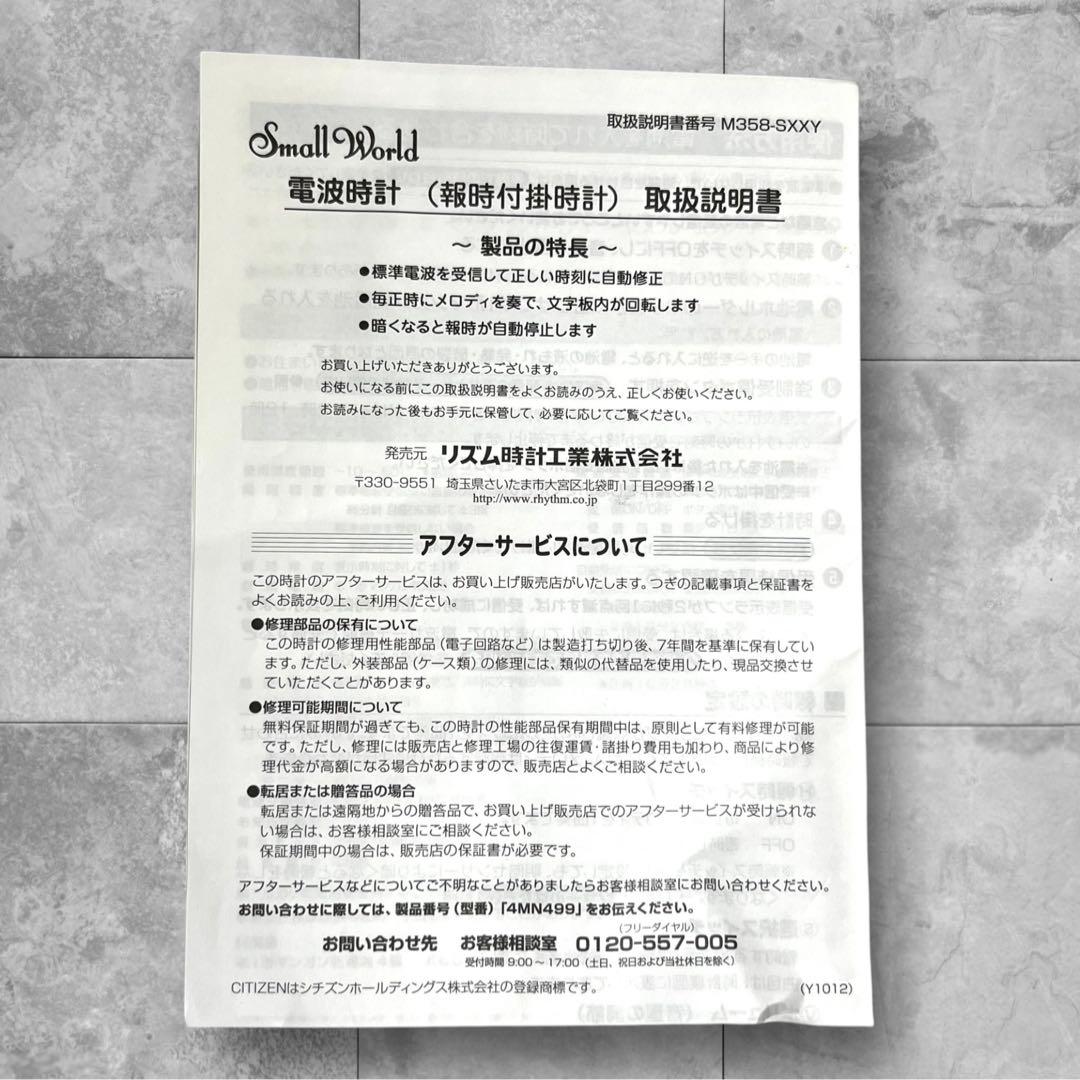 取扱説明書番号 M358-SXXY
Small World
電波時計 （報時付掛時計） 取扱説明書
～ 製品の特長 ～
●標準電波を受信して正しい時刻に自動修正
●毎正時にメロディを奏で、文字板内が回転します
●暗くなると報時が自動停止します
お買い上げいただきありがとうございます。
お使いになる前にこの取扱説明書をよくお読みのうえ、正しくお使いください。
お読みになった後もお手元に保管して、必要に応じてご覧ください。
発売元 リズム時計工業株式会社
〒330-9551 埼玉県さいたま市大宮区北袋町1丁目299番12
http://www.rhythm.co.jp
アフターサービスについて
この時計のアフターサービスは、お買い上げ販売店がいたします。つぎの記載事項と保証書を
よくお読みの上、ご利用ください。
●修理部品の保有について
この時計の修理用性能部品（電子回路など）は製造打ち切り後、7年間を基準に保有してい
ます。ただし、外装部品（ケース類）の修理には、類似の代替品を使用したり、現品交換させ
ていただくことがあります。
●修理可能期間について
無料保証期間が過ぎても、この時計の性能部品保有期間中は、原則として有料修理が可能
です。ただし、修理には販売店と修理工場の往復運賃・諸掛り費用も加わり、商品により修
理代金が高額になる場合がありますので、販売店とよくご相談ください。
●転居または贈答品の場合
転居または遠隔地からの贈答品で、お買い上げ販売店でのアフターサービスが受けられな
い場合は、お客様相談室にご相談ください。
保証期間中の場合は、販売店の保証書が必要です。
アフターサービスなどについてご不明なことがありましたらお客様相談室にお問い合わせください。
お問い合わせに際しては、製品番号（型番）「4MN499」をお伝えください。
（フリーダイヤル）
お問い合わせ先 お客様相談室 0120-557-005
受付時間 9:00～17:00（土日、祝日および当社休日を除く）
CITIZENはシチズンホールディングス株式会社の登録商標です。
（Y1012）